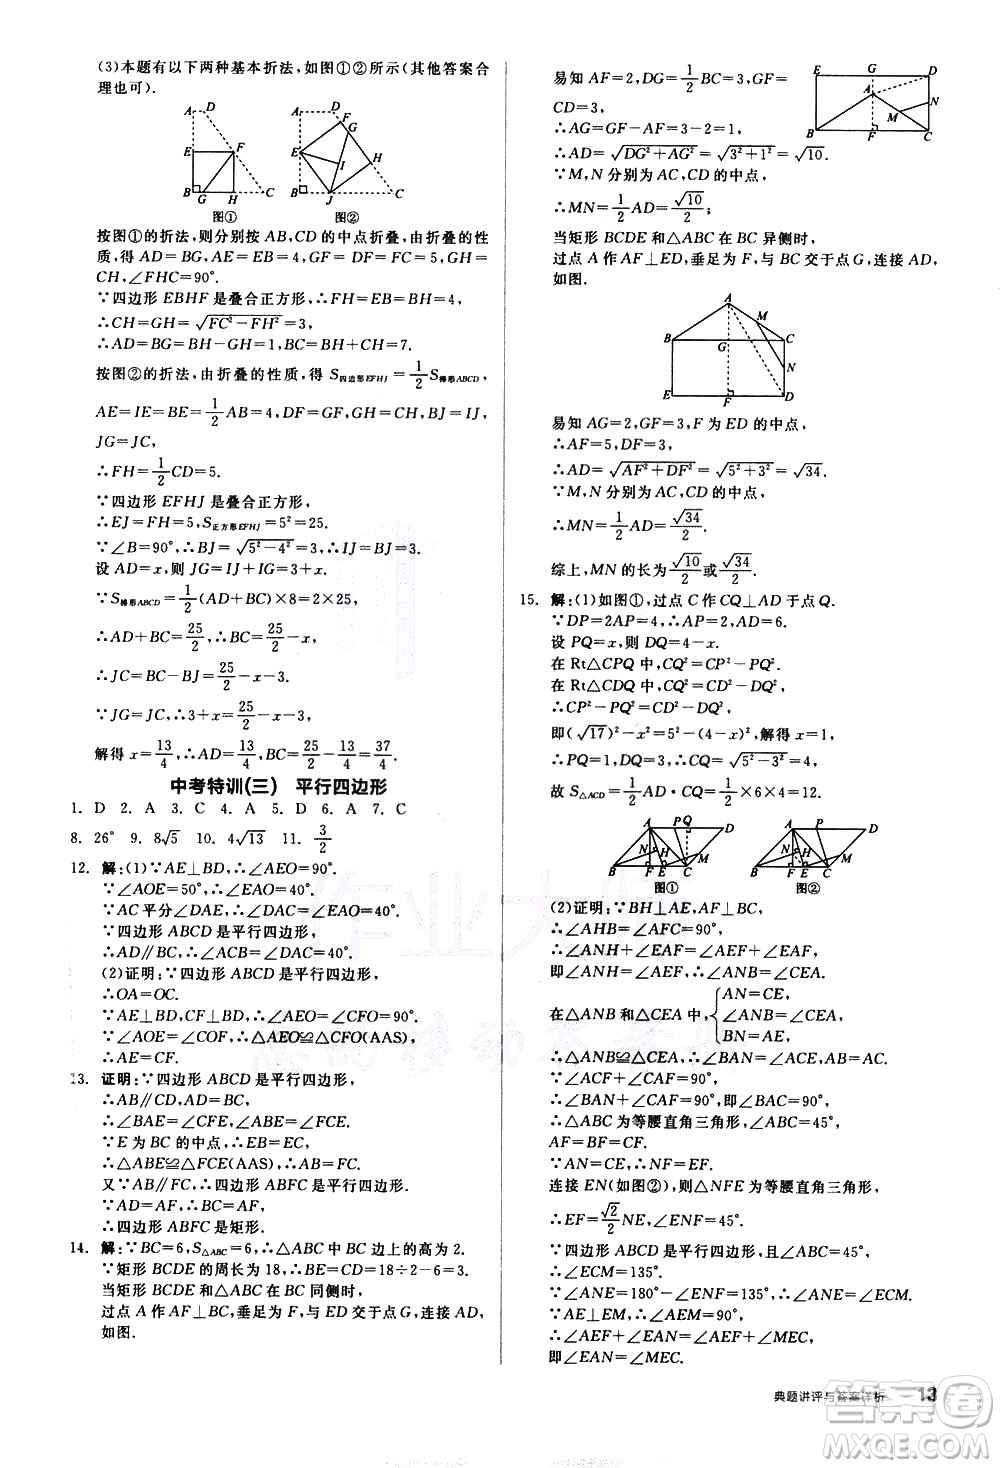 (3)本题有以下两种基本折法,如图①②所示(其他答案合
理也可).
A D E F B G H C
图①
A D F G E H I B J C
图②
按图①的折法,则分别按 AB,CD 的中点折叠,由折叠的性
质,得 AD=BG,AE=EB=4,GF=DF=FC=5,GH=
CH,∠FHC=90°.
∵四边形 EBHF 是叠合正方形,∴FH=EB=BH=4,
∴CH=GH=√(FC²-FH²)=3,
∴AD=BG=BH-GH=1,BC=BH+CH=7.
按图②的折法,由折叠的性质,得 S四边形EFHJ=1/2 S梯形ABCD,
AE=IE=BE=1/2 AB=4,DF=GF,GH=CH,BJ=IJ,
JG=JC,
∴FH=1/2 CD=5.
∵四边形 EFHJ 是叠合正方形,
∴EJ=FH=5,S正方形EFHJ=5²=25.
∵∠B=90°,∴BJ=√(5²-4²)=3,∴IJ=BJ=3.
设 AD=x,则 JG=IJ+IG=3+x.
∵S梯形ABCD=1/2(AD+BC)×8=2×25,
∴AD+BC=25/2,∴BC=25/2-x,
∴JC=BC-BJ=25/2-x-3.
∵JG=JC,∴3+x=25/2-x-3,
解得 x=13/4,∴AD=13/4,BC=25/2-13/4=37/4.
中考特训(三) 平行四边形
1. D 2. A 3. C 4. A 5. D 6. A 7. C
8. 26° 9. 8√5 10. 4√13 11. 3/2
12. 解:(1)∵AE⊥BD,∴∠AEO=90°.
∵∠AOE=50°,∴∠EAO=40°.
∵AC 平分∠DAE,∴∠DAC=∠EAO=40°.
∵四边形 ABCD 是平行四边形,
∴AD∥BC,∴∠ACB=∠DAC=40°.
(2)证明:∵四边形 ABCD 是平行四边形,
∴OA=OC.
∵AE⊥BD,CF⊥BD,∴∠AEO=∠CFO=90°.
∵∠AOE=∠COF,∴△AEO≌△CFO(AAS),
∴AE=CF.
13. 证明:∵四边形 ABCD 是平行四边形,
∴AB∥CD,AD=BC,
∴∠BAE=∠CFE,∠ABE=∠FCE.
∵E 为 BC 的中点,∴EB=EC,
∴△ABE≌△FCE(AAS),∴AB=FC.
又∵AB∥FC,∴四边形 ABFC 是平行四边形.
∵AD=AF,∴BC=AF,
∴四边形 ABFC 是矩形.
14. 解:∵BC=6,S△ABC=6,∴△ABC 中 BC 边上的高为 2.
∵矩形 BCDE 的周长为 18,∴BE=CD=18÷2-6=3.
当矩形 BCDE 和△ABC 在 BC 同侧时,
过点 A 作 AF⊥BC,垂足为 F,与 ED 交于点 G,连接 AD,
如图.
易知 AF=2,DG=1/2 BC=3,GF=
CD=3,
∴AG=GF-AF=3-2=1,
∴AD=√(DG²+AG²)=√(3²+1²)=√10.
∵M,N 分别为 AC,CD 的中点,
∴MN=1/2 AD=√10/2;
E G D A M N B F C
当矩形 BCDE 和△ABC 在 BC 异侧时,
过点 A 作 AF⊥ED,垂足为 F,与 BC 交于点 G,连接 AD,
如图.
A M B G C N E F D
易知 AG=2,GF=3,F 为 ED 的中点,
∴AF=5,DF=3,
∴AD=√(AF²+DF²)=√(5²+3²)=√34.
∵M,N 分别为 AC,CD 的中点,
∴MN=1/2 AD=√34/2.
综上,MN 的长为√10/2或√34/2.
15. 解:(1)如图①,过点 C 作 CQ⊥AD 于点 Q.
∵DP=2AP=4,∴AP=2,AD=6.
设 PQ=x,则 DQ=4-x.
在 Rt△CPQ 中,CQ²=CP²-PQ²,
在 Rt△CDQ 中,CQ²=CD²-DQ²,
∴CP²-PQ²=CD²-DQ²,
即(√17)²-x²=5²-(4-x)²,解得 x=1,
∴PQ=1,∴DQ=4-x=3,∴CQ=√(5²-3²)=4,
故 S△ACD=1/2 AD·CQ=1/2×6×4=12.
A P Q D N H M B F E C
图①
A P D N H M B F E C
图②
(2)证明:∵BH⊥AE,AF⊥BC,
∴∠NHA=∠AFC=90°,
∴∠ANH+∠EAF=∠AEF+∠EAF,
即∠ANH=∠AEF,∴∠ANB=∠CEA.
在△ANB 和△CEA 中,{AN=CE, ∠ANB=∠CEA, BN=AE,
∴△ANB≌△CEA,∴∠BAN=∠ACE.
∵∠ACE+∠CAF=90°,
∴∠BAN+∠CAF=90°,即∠BAC=90°,
∴△ABC 为等腰直角三角形,∠ABC=45°,
AF=BF=CF.
∵AN=CE,∴NF=EF.
连接 EN(如图②),则△NFE 为等腰直角三角形,
∴EF=√2/2 NE,∠FNE=45°.
∵四边形 ABCD 是平行四边形,∠ABC=45°,
∴∠ECM=135°.
∵∠ANE=180°-∠ENF=135°,∴∠ANE=∠ECM.
∵AE⊥EM,∴∠AEM=90°,
∴∠AEF+∠EAF=∠AEF+∠MEC,
即∠EAN=∠MEC,
典题讲评与答案详析 13
作业大师
答案圈
MXQE.COM